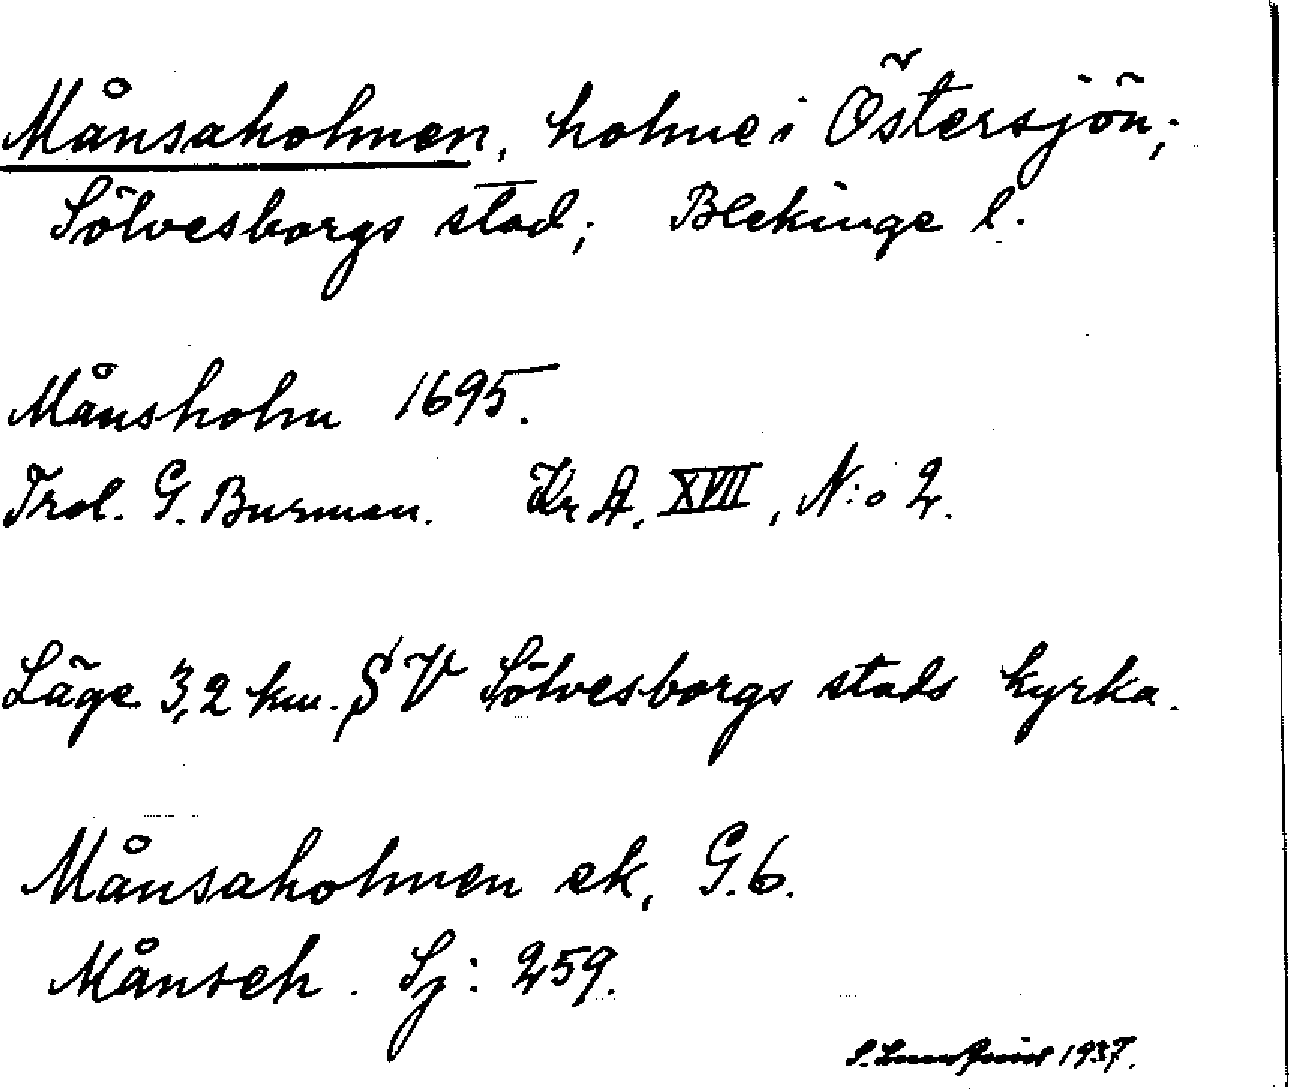 Månsaholmen, holme i Östersjön;
Sölvesborgs stad; Blekinge l.
Månsholm 1695.
Trol. G. Burman. Kr A. XVIII, N:o 2.
Läge 3,2 km. S V Sölvesborgs stads kyrka.
Månsaholmen ek, G.6.
Månseh. Sj: 259.
S. 1937.